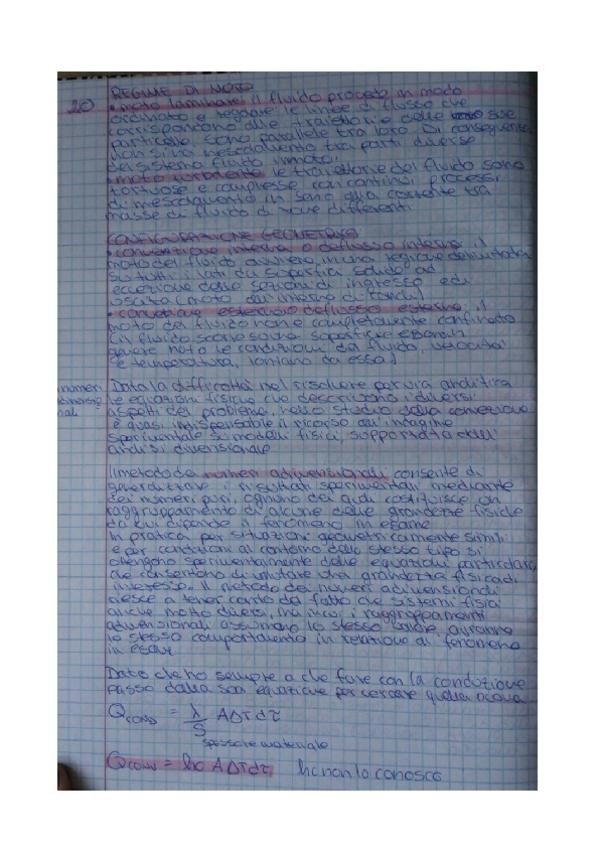 20
REGIME DI MOTO
• moto laminare: il fluido procede in modo
ordinato e regolare: le linee di flusso che
corrispondono alle traiettorie delle sue
particelle, sono parallele tra loro. Di conseguenza
non si ha mescolamento tra parti diverse
del sistema fluido in moto.
• moto turbolento: le traiettorie del fluido sono
tortuose e complesse, con continui processi
di mescolamento in seno alla corrente tra
masse di fluido di zone differenti.
CONFIGURAZIONE GEOMETRICA
• convenzione interna o deflusso interno: il
moto del fluido avviene in una regione delimitata
su tutti i lati da superfici solide ad
eccezione delle sezioni di ingresso e di
uscita (moto all'interno di condotti)
• convezione esterna o deflusso esterno: il
moto del fluido non è completamente confinato
(il fluido scorre su una superficie e sono in
genere note le condizioni del fluido, velocità
e temperatura, lontano da essa)
numeri
adimensio
nali
Data la difficoltà nel risolvere per via analitica
le equazioni fisiche che descrivono i diversi
aspetti del problema, nello studio della convezione
è quasi indispensabile il ricorso all'indagine
sperimentale su modelli fisici, supportata dall'
analisi dimensionale
Il metodo dei numeri adimensionali consente di
generalizzare i risultati sperimentali mediante
dei numeri puri, ognuno dei quali costituisce un
raggruppamento di alcune delle grandezze fisiche
da cui dipende il fenomeno in esame.
In pratica per situazioni geometricamente simili
e per condizioni al contorno dello stesso tipo si
ottengono sperimentalmente delle equazioni particolari,
che consentono di valutare una grandezza fisica di
interesse. Il metodo dei numeri adimensionali
riesce a tener conto del fatto che sistemi fisici
anche molto diversi, ma in cui i raggruppamenti
adimensionali assumono lo stesso valore, avranno
lo stesso comportamento in relazione al fenomeno
in esame
Dato che ho sempre a che fare con la conduzione
passo dalla sua equazione per cercare quella
Qcond = λ/S A ΔT dτ
spessore materiale
Qconv = hc A ΔT dτ hc non lo conosco